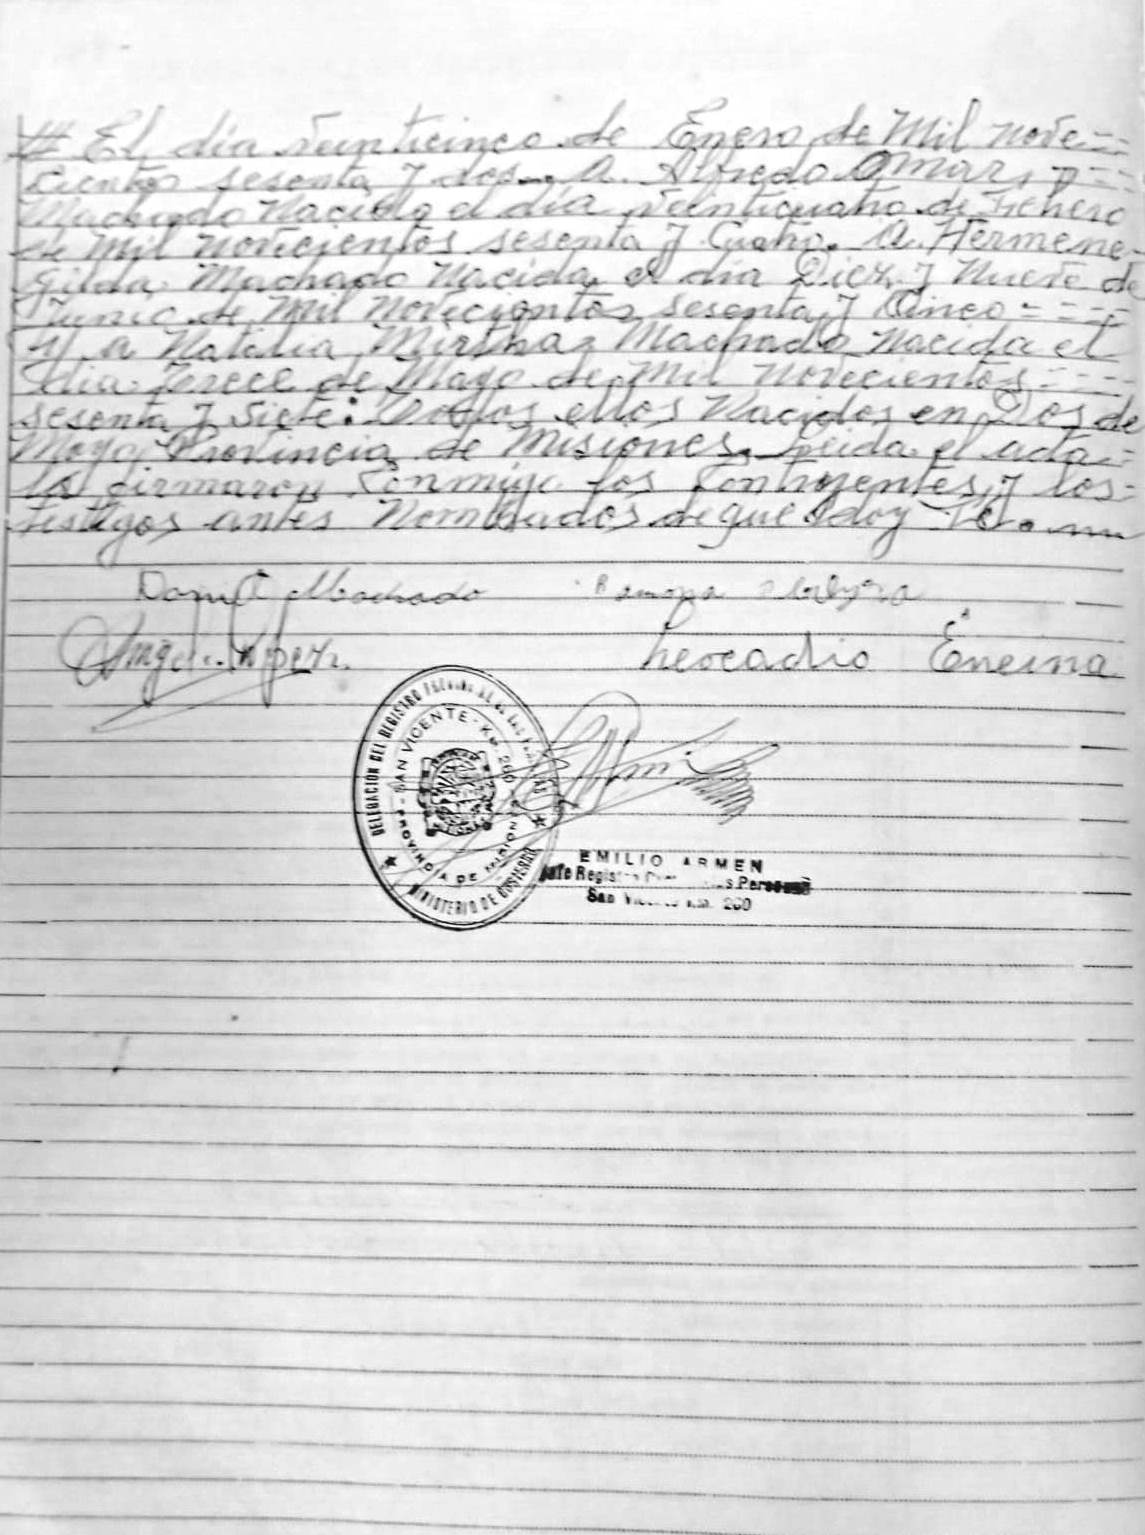 # El día veinticinco de Enero de Mil nove==
cientos sesenta y dos. A Alfredo Omar, ===
Machado Nacido el día veinticuatro de Febrero
de Mil novecientos sesenta y Cuatro. A Hermene-
gilda Machado Nacida el día Diez y Nueve de
Junio de Mil Novecientos sesenta y Cinco ====
y a Natalia Mirtha Machado Nacida el
día Trece de Mayo de Mil novecientos ----
sesenta y siete: Todos ellos Nacidos en Dos de
Mayo Provincia de Misiones. Leida el acta =
la firmaron Conmigo los Contrayentes y los =
testigos antes Nombrados de que doy Fe.
Daniel Machado Ramona
Angel Lopez. Leocadio Encina
DELEGACION DEL REGISTRO PROVINCIAL DE LAS PERSONAS
SAN VICENTE - KM. 260
PROVINCIA DE MISIONES
MINISTERIO DE GOBIERNO
EMILIO ARMEN
Jefe Registro Personas
San Vicente Km. 260